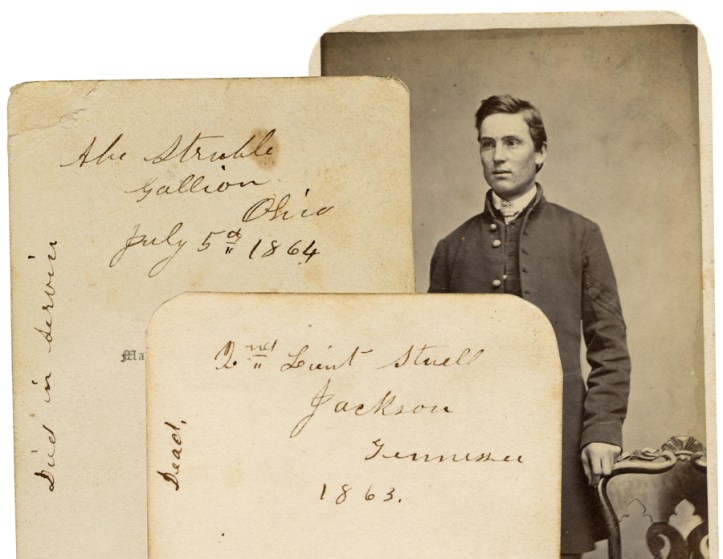 Abe Struble
Gallion
Ohio
July 5d 1864
Died in servin
Ma
2nd Lieut Stuell
Jackson
Tennessee
1863.
Dead.